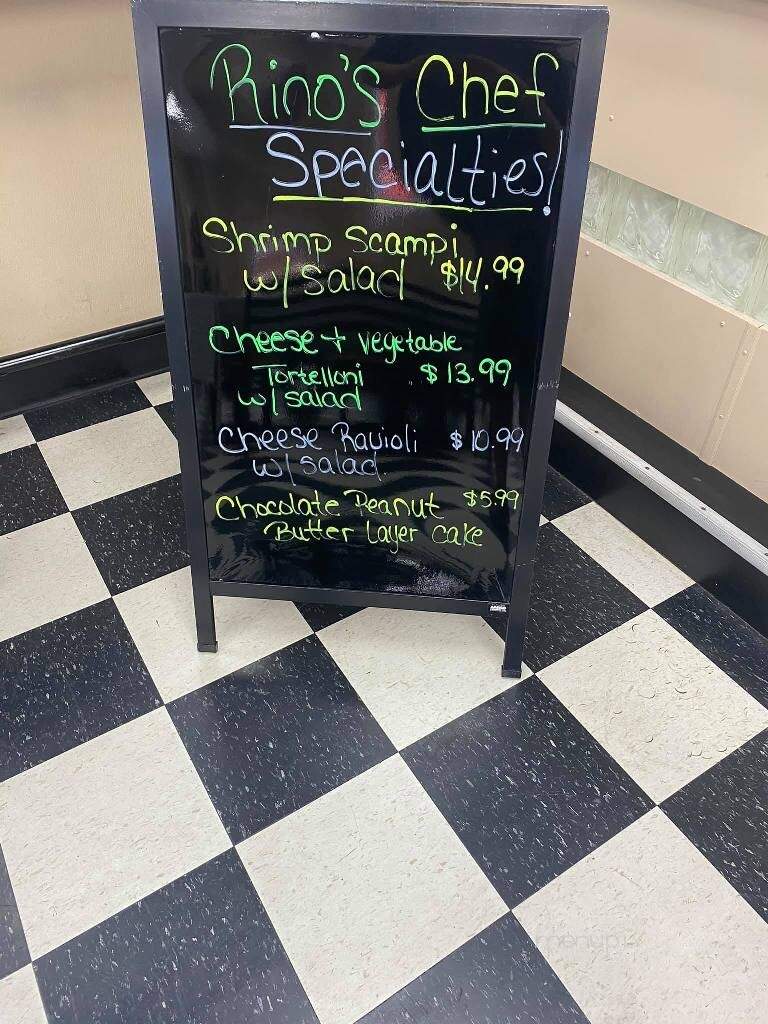 Rino's Chef
Specialties!
Shrimp Scampi
w/ salad $14.99
Cheese + vegetable
Tortelloni $13.99
w/ salad
Cheese Ravioli $10.99
w/ salad
Chocolate Peanut $5.99
Butter Layer cake